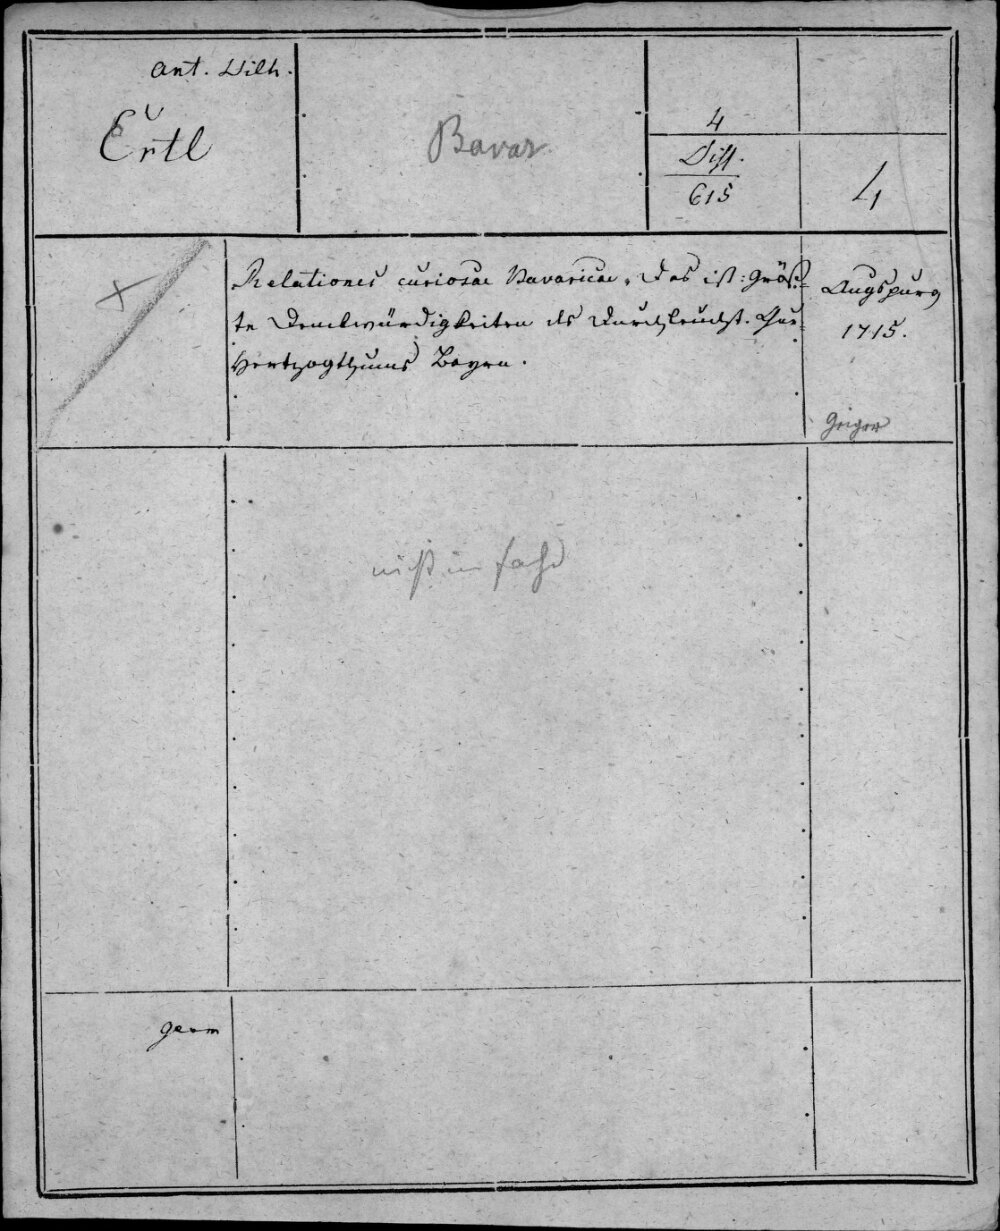 Ant. Wilh.
Ertl
Bavar.
4
Diss.
615
4
Relationes curiosae Bavaricae, Das ist: Größ-
te Denckwürdigkeiten des Durchleuchst. Chur-
Hertzogthums Bayrn.
Augspurg
1715.
Geiger
nicht in
germ